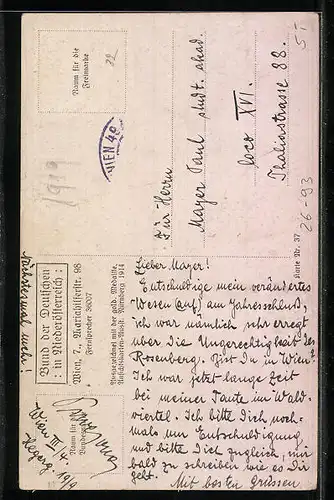 Raum für die
Freimarke
22
1919
WIEN 40
An Herrn
Mayer Paul stud. akad.
loco XVI.
Thaliastrasse 88.
5.-
26-93
Karte Nr. 37
Bund der Deutschen
: in Niederösterreich :
Wien, 7., Mariahilferstr. 98
Fernsprecher 36007
Preisgezeichnet mit der gold. Medaille,
Ansichtskarten-Ausst. Nürnberg 1914
Raum für die
Wien III/4.
Hegerg. 19/9
Lieber Mayer!
Entschuldige mein verändertes
Wesen (auf) am Jahresschluß,
ich war nämlich sehr erregt
über die Ungerechtigkeit des
Rosenberg. Bist Du in Wien?
Ich war jetzt lange Zeit
bei meiner Tante im Wald-
viertel. Ich bitte Dich noch-
mals um Entschuldigung
und bitte Dich zugleich, mir
bald zu schreiben wie es Dir
geht.
Mit besten Grüssen